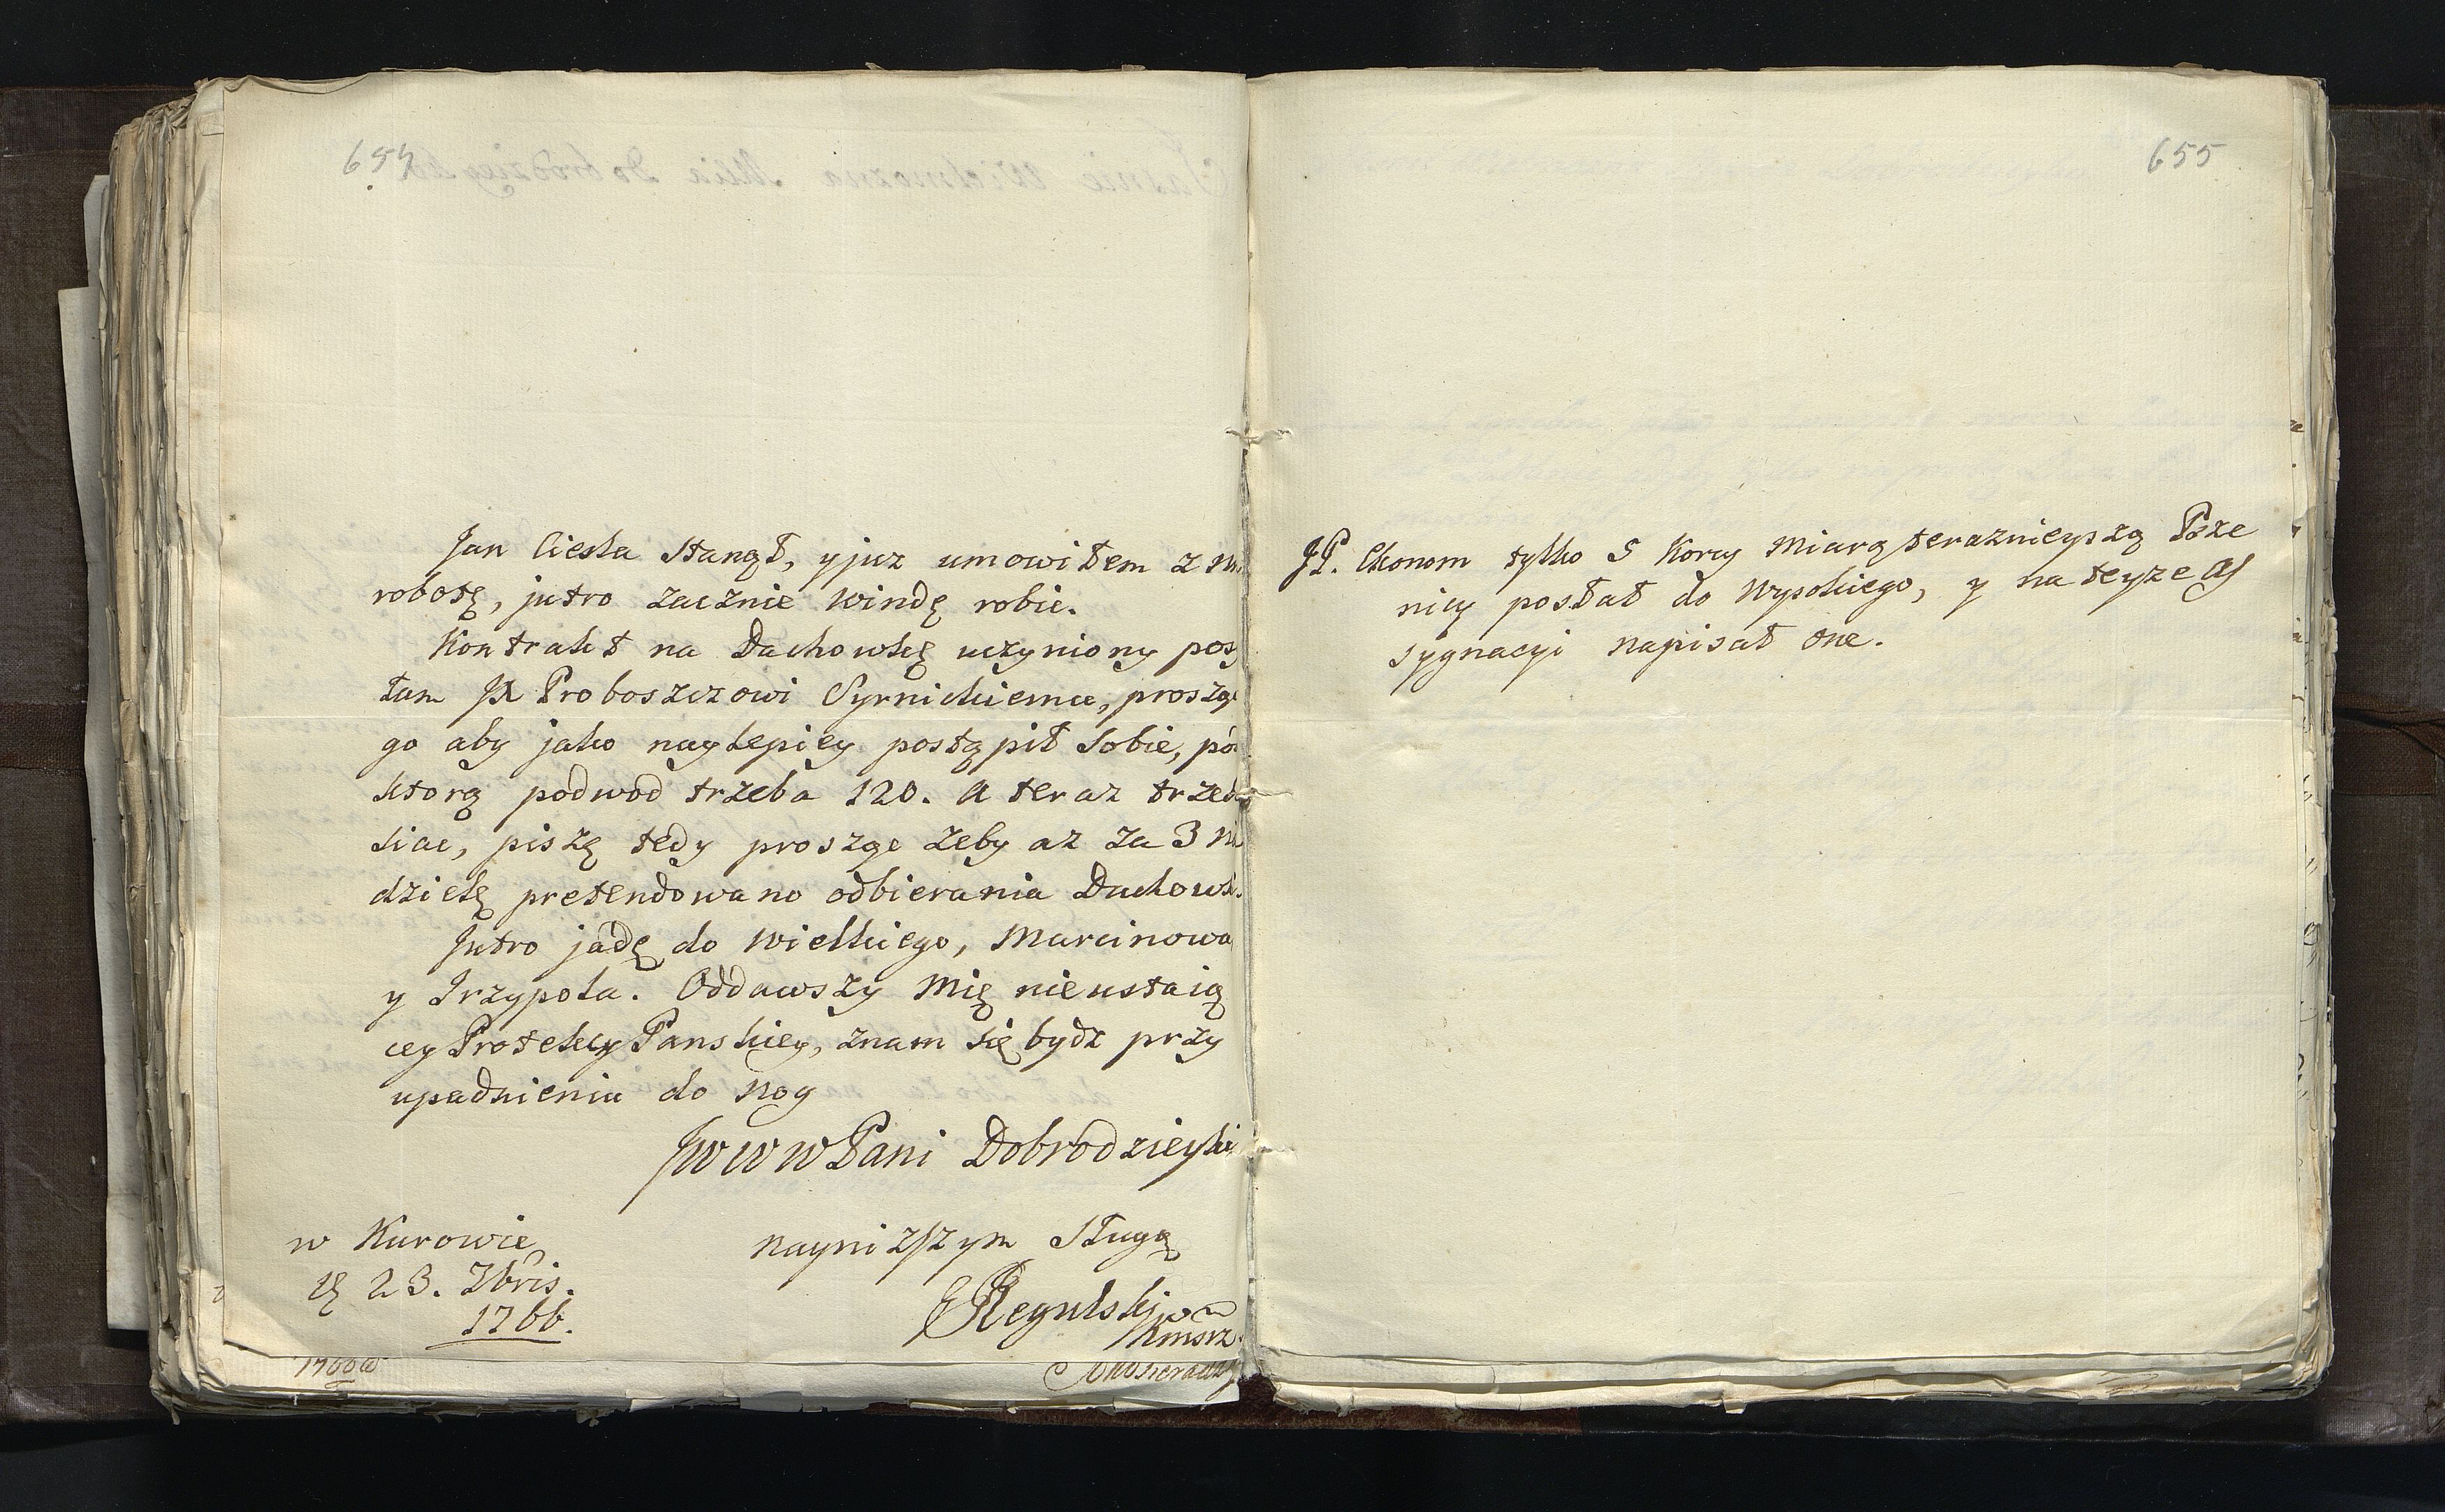 654
Jan Ciesla Stanął, y juz umowiłem z
robotę, jutro zacznie windę robic.
Kontrakt na Dachowkę uczyniony pos
łam JX Proboszczowi Syrnickiemu, prosząc
go aby jako naylepiey postąpił Sobie, po
ktorą podwod trzeba 120. a teraz trzeba
siac, piszę tedy proszęc zeby az za 3 nie
dzielę pretendowano odbierania Dachowk.
Jutro jadę do Wielkiego, Marcinowa
y Trzypola. Oddawszy Mię nieustaią
cey Protekcy Panskiey, znam się bydz przy
upadnieniu do Nog
JWWW Pani Dobrodzieyki
w Kurowie
d 23. 7bris.
1766.
nayniższym Sługą
Regulski
Kmsrz
655
JP. Ekonom tylko 5 Korcy Miarą terazniejszą Psze
nicy posłał do Wysokiego, y na teyze As
sygnacyi napisał one.